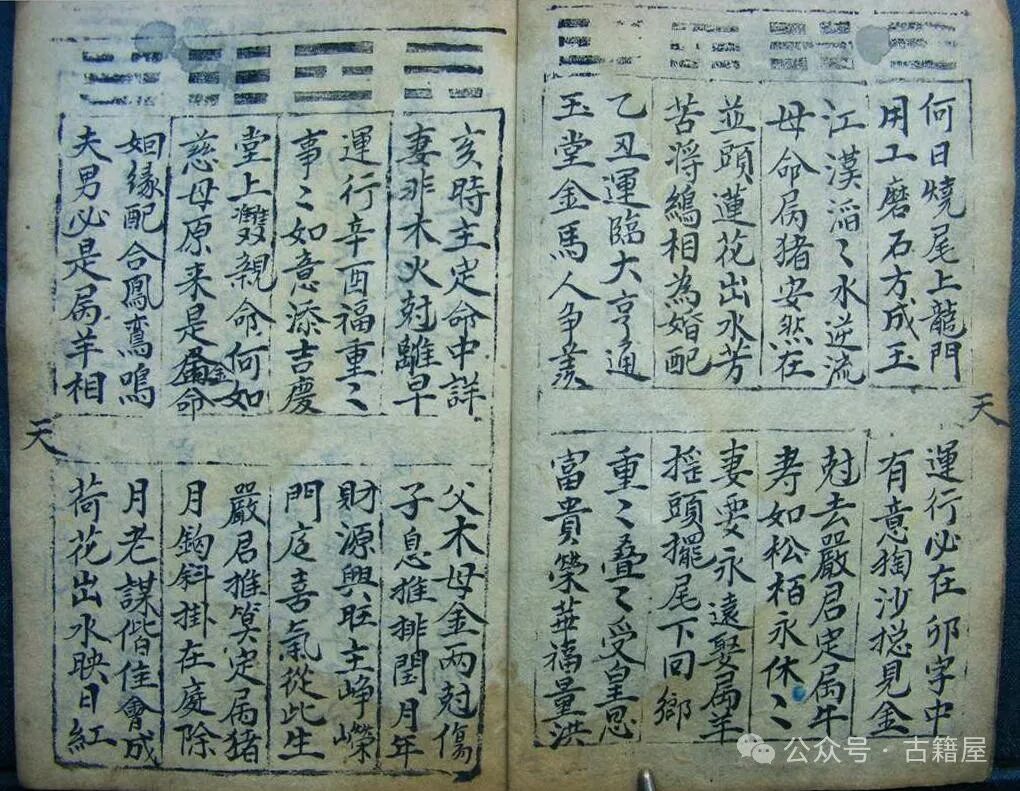 何日燒尾上龍門
運行必在卯字中
用工磨石方成玉
有意掏沙捴見金
江漢滔〻水逆流
尅去嚴君定属牛
母命属猪安然在
寿如松栢永休〻
並頭蓮花出水芳
妻要永遠娶属羊
苦将鴆相為婚配
摇頭擺尾下回鄉
乙丑運臨大亨通
重〻叠〻受皇恩
玉堂金馬人争羡
富貴榮華福量洪
天
亥時主定命中詳
父木母金両尅傷
妻非木火尅雖早
子息推排閏月年
運行辛酉福重〻
財源興旺主峥嶸
事〻如意添吉慶
門庭喜氣從此生
堂上雙親命何如
嚴君推筭定属猪
慈母原来是属金命
月鈎斜掛在庭除
姻緣配合鳳鸞鳴
月老謀偕佳會成
夫男必是属羊相
荷花出水映日紅
天
公众号·古籍屋